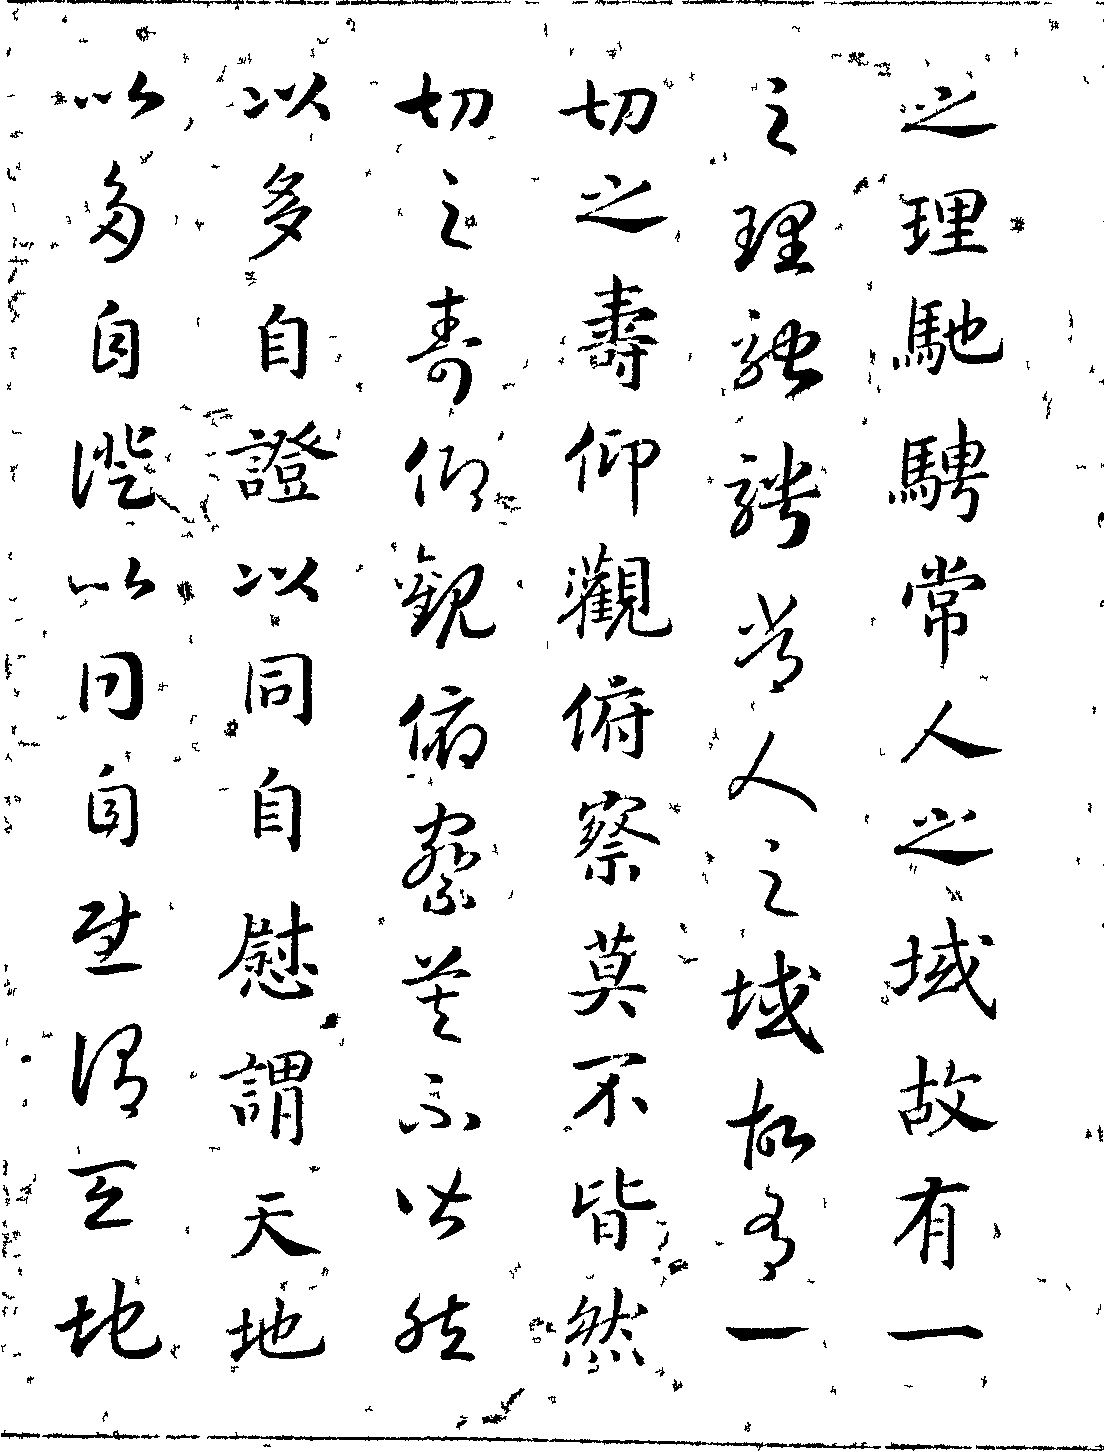 之理馳騁常人之域故有一
之理馳騁常人之域故有一
切之壽仰觀俯察莫不皆然
切之壽仰觀俯察莫不皆然
以多自證以同自慰謂天地
以多自證以同自慰謂天地